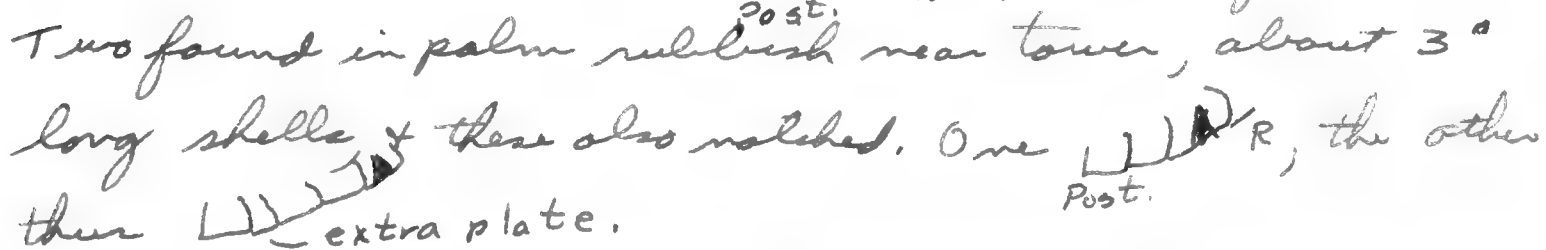 Post.
Two found in palm rubbish near tower, about 3"
long shells, & these also notched. One R, the other
Post.
thus extra plate.